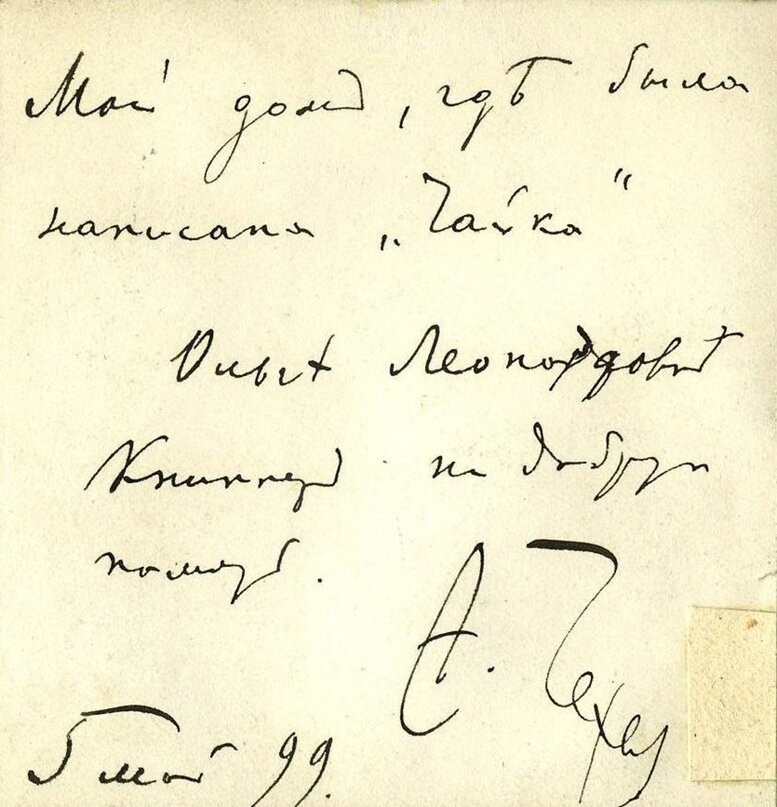 Мой домъ, гдѣ была
написана „Чайка“
Ольгѣ Леонардовнѣ
Книпперъ на добрую
память.
А. Чеховъ
5 май 99.